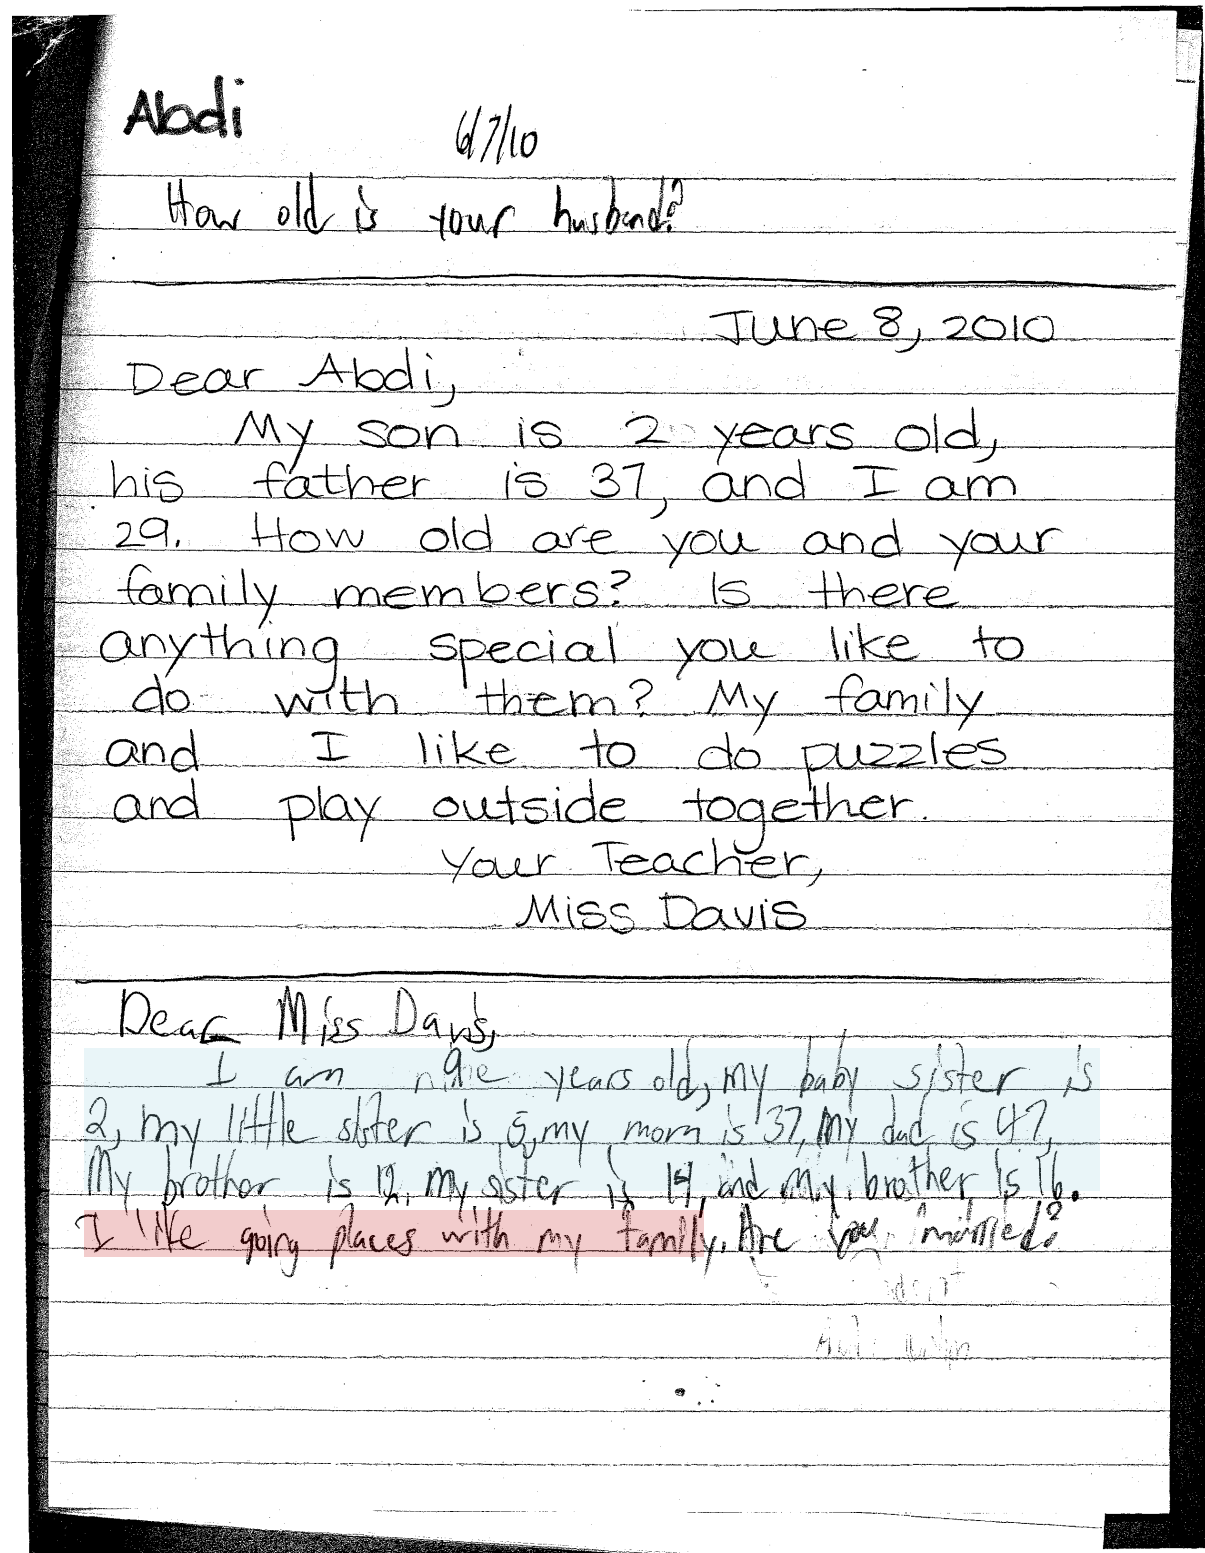 Abdi
6/7/10
How old is your husband?
June 8, 2010
Dear Abdi,
My son is 2 years old,
his father is 37, and I am
29. How old are you and your
family members? Is there
anything special you like to
do with them? My family
and I like to do puzzles
and play outside together.
Your Teacher,
Miss Davis
Dear Miss Davis,
I am 9 years old, my baby sister is
2, my little sister is 5, my mom is 37, my dad is 47,
My brother is 12, my sister is 14, and my brother is 16.
I like going places with my family. Are you married?